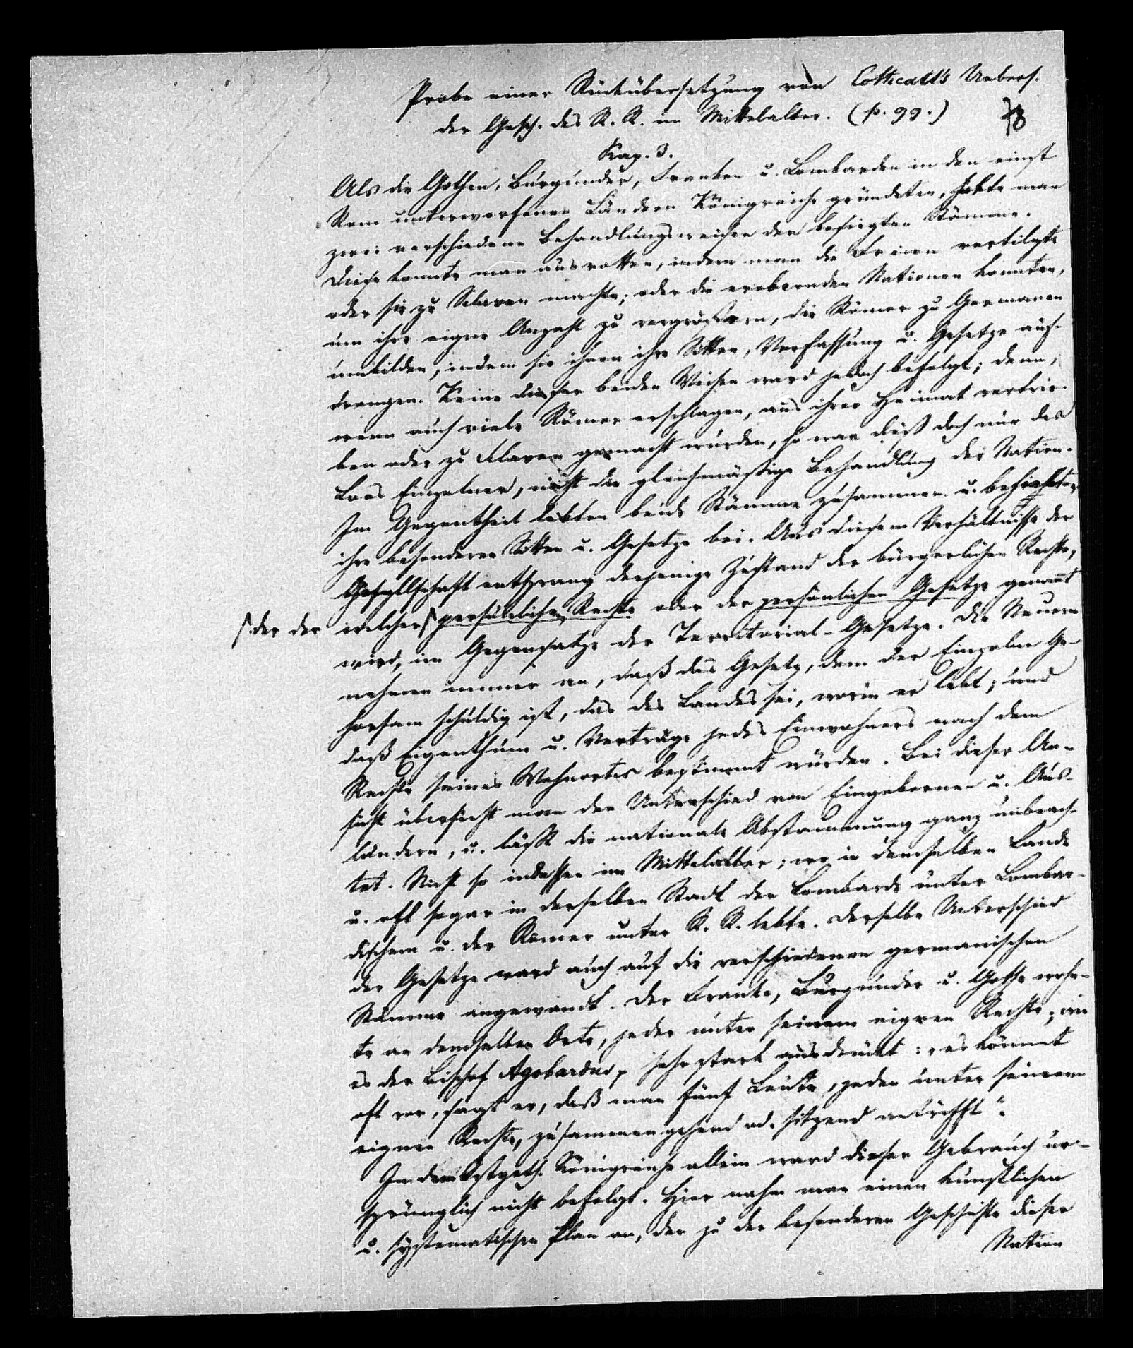 Probe einer Rückübersetzung von Cathcart's Uebers.
der Gesch. des R. R. im Mittelalter. (p. 99.)
78
Kap. 3.
Als die Gothen, Burgunder, Franken u. Lombarden in den einst
Rom unterworfenen Ländern Königreiche gründeten, hatte man
zwei verschiedene Behandlungsweisen der besiegten Stämme.
Diese konnte man ausrotten, indem man die Freien vertilgte
oder sie zu Sclaven machte; oder die erobernden Nationen konnten,
um ihre eigne Anzahl zu vergrößern, die Römer zu Germanen
umbilden, indem sie ihnen ihre Sitten, Verfassung u. Gesetze auf-
drangen. Keine dieser beiden Weisen ward jedoch befolgt; denn,
wenn auch viele Römer erschlagen, aus ihrer Heimat vertrie-
ben oder zu Sclaven gemacht wurden, so war dieß doch nur das
Loos Einzelner, nicht die gleichmäßige Behandlung der Nation.
Im Gegentheil lebten beide Stämme zusammen u. behielten
ihre besonderen Sitten u. Gesetze bei. Aus diesem Verhältnisse der
Gesellschaft entsprang derjenige Zustand der bürgerlichen Rechte,
/der der
welcher / persönlichen Rechte oder der persönlichen Gesetze genannt
wird, im Gegensatze der Territorial-Gesetze. Die Neuern
nehmen immer an, daß das Gesetz, dem der Einzelne Ge-
horsam schuldig ist, das des Landes sei, worin er lebt; und
daß Eigenthum u. Verträge jedes Einwohners nach dem
Rechte seines Wohnortes bestimmt würden. Bei dieser An-
sicht übersieht man den Unterschied von Eingebornen u. Aus-
ländern, u. läßt die nationale Abstammung ganz unbeach-
tet. Nicht so indessen im Mittelalter; wo in demselben Lande
u. oft sogar in derselben Stadt der Lombarde unter Lombar-
dischem u. der Römer unter R. R. lebte. Derselbe Unterschied
der Gesetze ward auch auf die verschiedenen germanischen
Stämme angewandt. Der Franke, Burgunder u. Gothe wohn-
te an demselben Orte, jeder unter seinem eignen Rechte, wie
es der Bischof Agobardus, sehr stark ausdrückt: „es kömmt
oft vor, sagt er, daß man fünf Leute, jeden unter seinem
eignen Rechte, zusammen gehend od. sitzend antrifft".
In dem Ostgoth. Königreiche allein ward dieser Gebrauch ur-
sprünglich nicht befolgt. Hier nahm man einen künstlichen
u. systematischen Plan an, der zu der besonderen Geschichte dieser
Nation